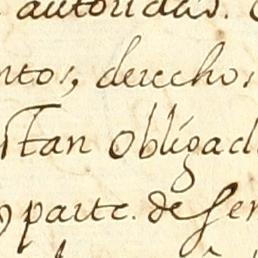 autoridad.
ntos, derechos
stan obligad
parte. de ser